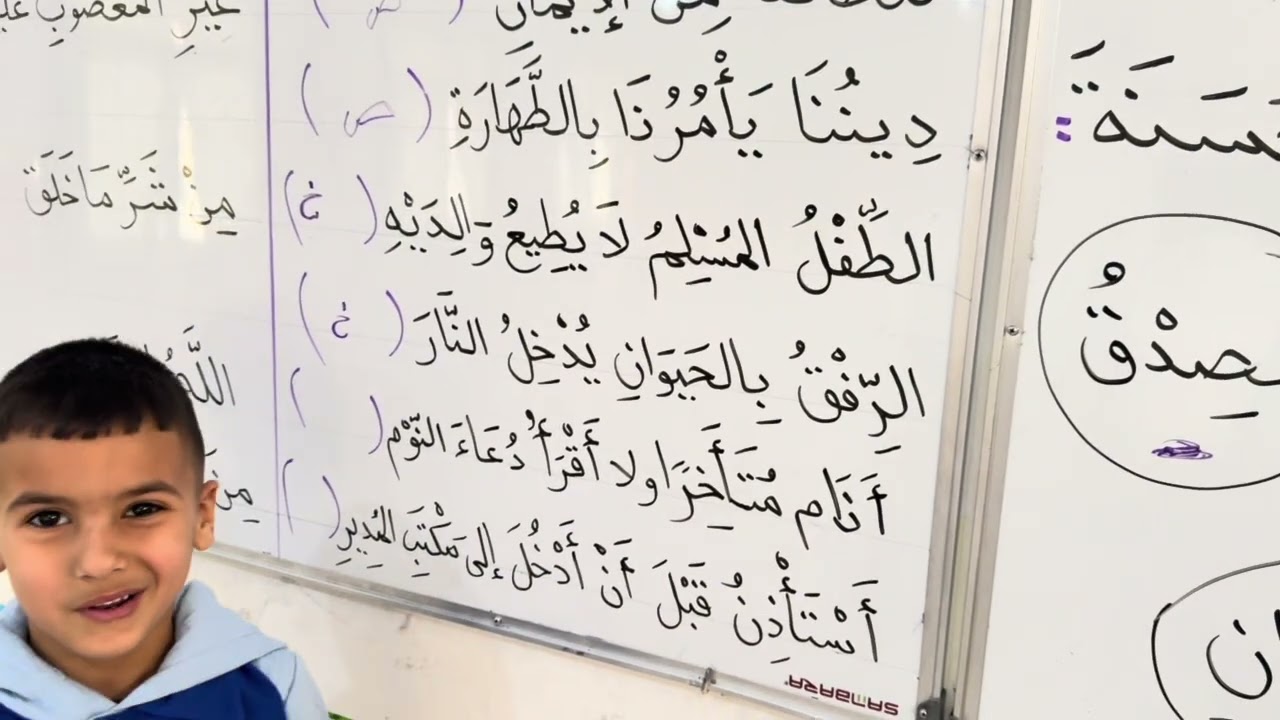 مِنَ الإِيمَانِ ( ص )
دِينُنَا يَأْمُرُنَا بِالطَّهَارَةِ ( ص )
الطِّفْلُ المُسْلِمُ لَا يُطِيعُ وَالِدَيْهِ ( خ )
الرِّفْقُ بِالحَيَوَانِ يُدْخِلُ النَّارَ ( خ )
أَنَام مُتَأَخِرًا ولا أَقْرَأُ دُعَاءَ النَّوْم ( )
أَسْتَأْذِنُ قَبْلَ أَنْ أَدْخُلَ إلى مَكْتَبِ المُدِيرِ ( )
غَيْرِ المَغْضُوبِ
مِنْ شَرِّ مَا خَلَقَ
SAMBARA